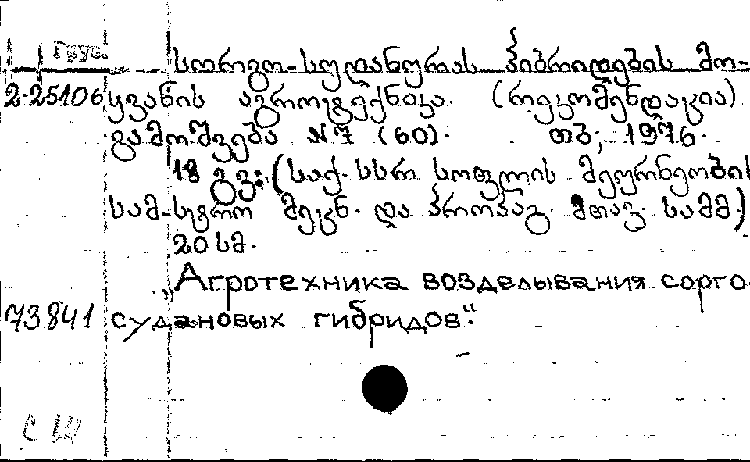 Груз.
სორგო-სუდანურის ჰიბრიდების მო-
2-25106 ყვანის აგროტექნიკა. (რეკომენდაცია).
გამოშვება №7 (60). თბ, 1976.
18 გვ; (საქ. სსრ სოფლის მეურნეობის
სამ-სტრო მეცნ. და პროპაგ. მთავ. სამმ.)
20 სმ.
„Агротехника возделывания сорго
73841 судановых гибридов“.